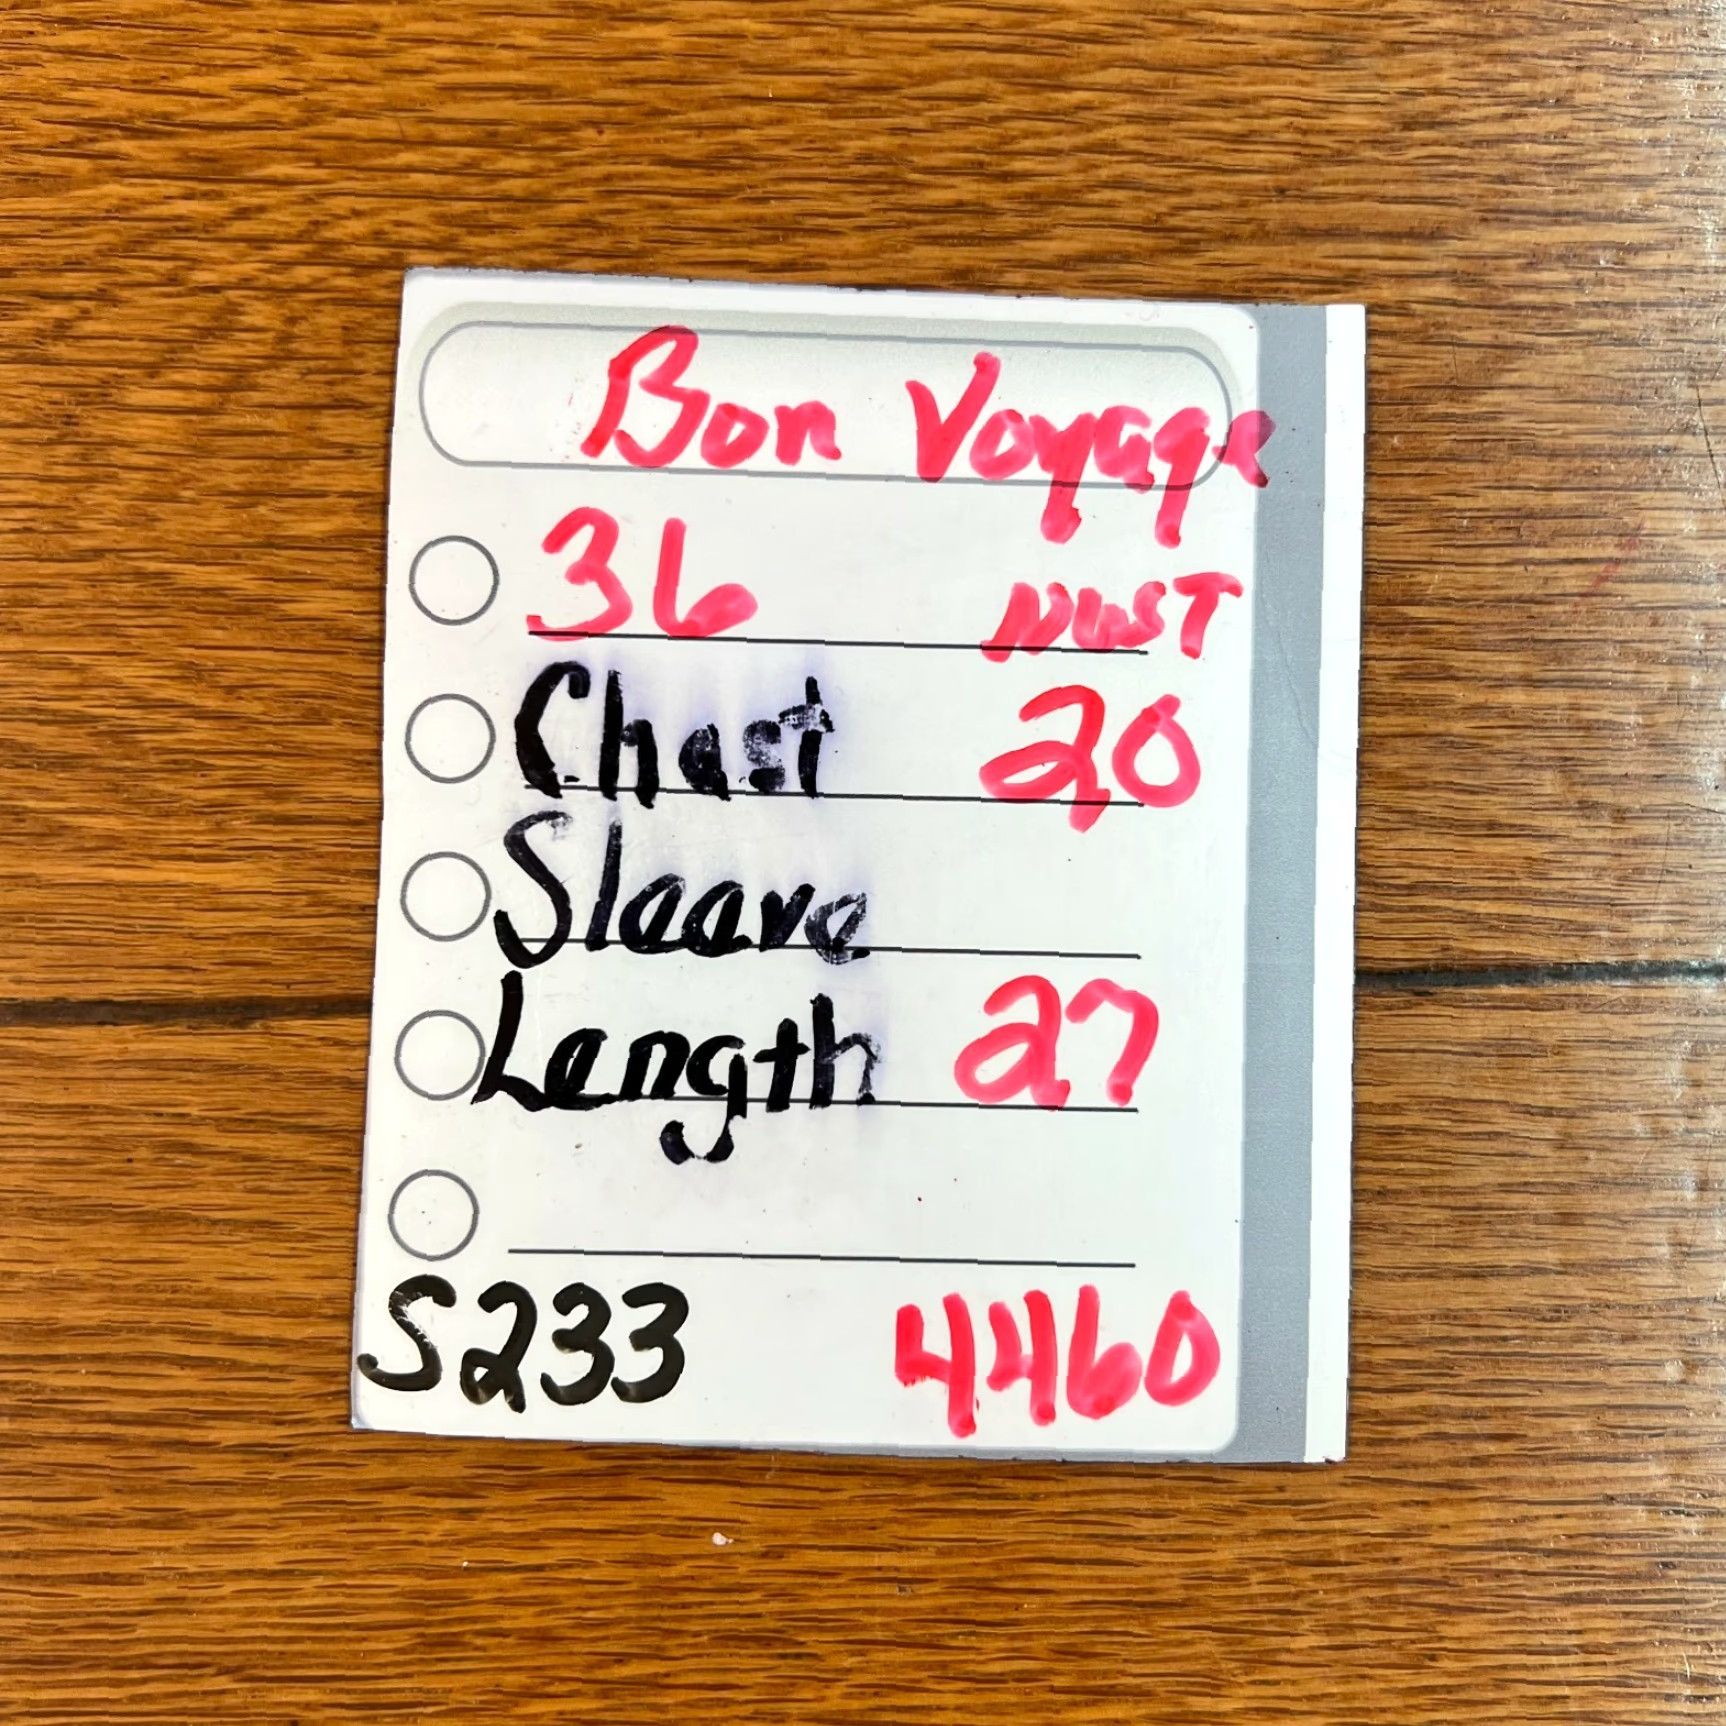 Bon Voyage
36 NWST
Chest 20
Sleeve
Length 27
S233 4460